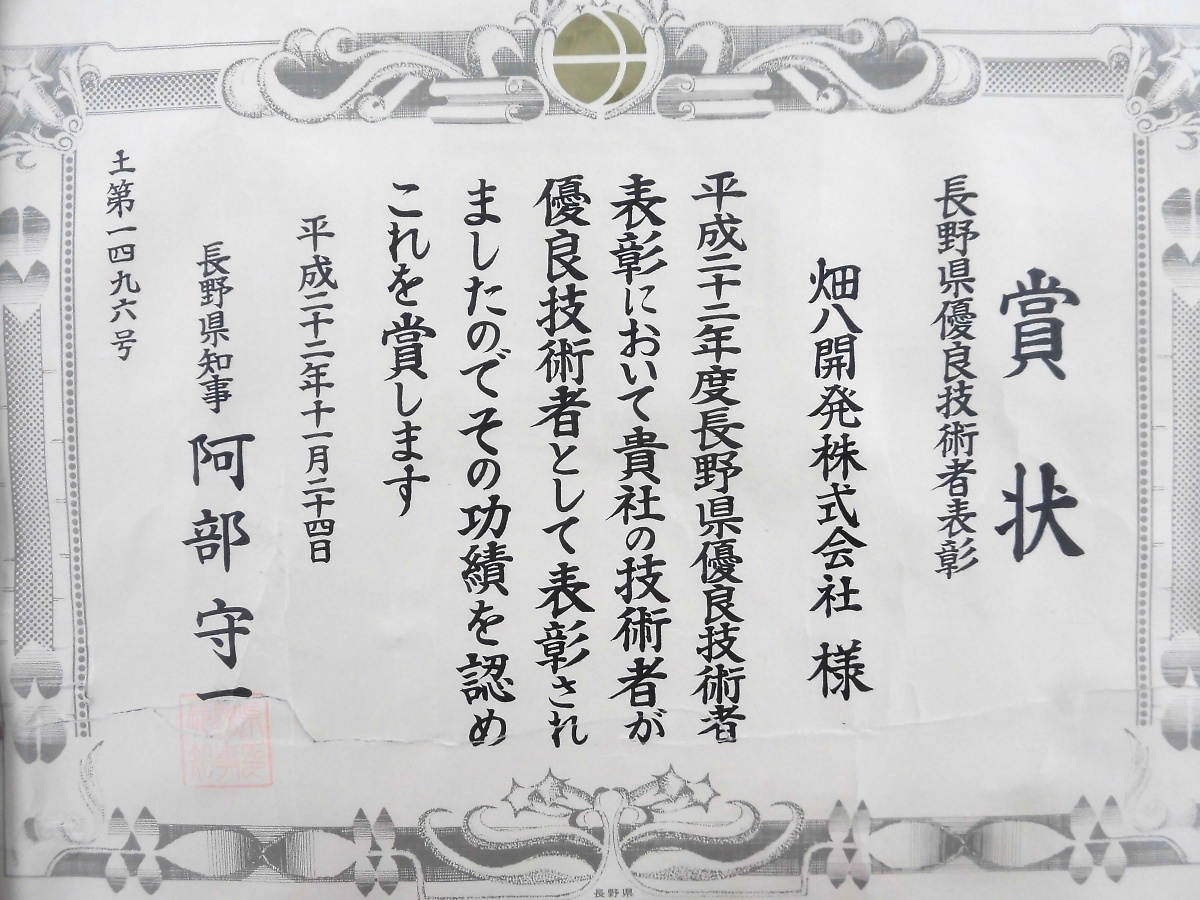 賞状
長野県優良技術者表彰
畑八開発株式会社 様
平成二十二年度長野県優良技術者
表彰において貴社の技術者が
優良技術者として表彰され
ましたのでその功績を認め
これを賞します
平成二十二年十一月二十四日
長野県知事 阿部守一
土第一四九六号
長野県